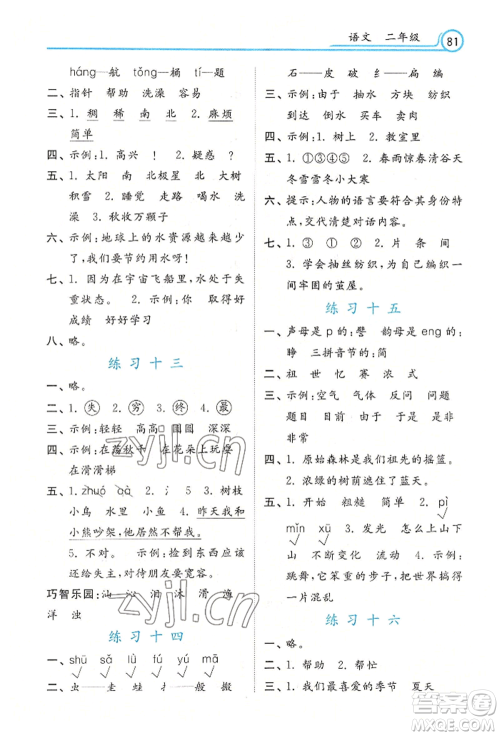 语文 二年级 81
háng—航 tǒng—桶 tí—题
二、指针 防备 洗澡 容易
三、1. 稠 稀 南 北 2. 麻烦
简单
四、示例:1. 高兴! 2. 疑惑?
五、1. 太阳 南 北极星 北 大树
积雪 2. 睡觉 走路 喝水 洗
澡 3. 秋收万颗子
六、示例:地球上的水资源越来越少
了,我们要节约用水呀!
七、1. 因为在宇宙飞船里,水会失去
重状态。 2. 示例:你 取得好
成绩 好好学习
八、略。
练习十三
一、略。
二、1. 失 2. 穷 3. 终 4. 最
三、示例:轻轻 高高 圆圆 深深
四、示例:在荡秋千 在花朵上玩
在滑滑梯
五、1. zhuó qà 2. 河水 3. 树枝
小鸟 水里 小鱼 4. 昨天我和
小熊吵架,他居然不帮我。
5. 不对。 示例:捡到东西应该
还给失主,对待朋友要宽容。
巧智乐园:汕 汔 汨 沐 滑 渔
洋 浊
练习十四
一、shū sǎ tú yú mā
二、虫——蛙 蛙 扌——般 搬
石——皮 破 贝——反 贩
三、示例:由于 抽水 方块 纺织
到达 倒水 买车 卖肉
四、示例:1. 树上 2. 教室里
五、1. ①③④⑤ 2. 春雨惊春清谷天
冬雪雪冬小大寒
六、提示:人物的语言要符合其身份特
点,交代清楚对话内容。
七、1. ③ ① ② 2. 片 条 间
3. 学会抽丝纺织,并编织成一
间牢固的茧屋。
练习十五
一、声母是 p 的:譬 韵母是 eng 的:
睁 三拼音节的:简
二、祖 世 忆 赛 浓 式
三、示例:空气 气体 反问 问题
题目 目前 于是 是否 是非
非常
四、1. 原始森林是我们祖先的摇篮。
2. 浓绿的树荫就是我的家。
五、1. 开始 粗糙 简单 2. pì
mǐn xū 3. 发光 怎么办
环境 流动 4. 示例:
跳舞,它笨重的步子,把世界搞得
一片混乱。
练习十六
一、略。
二、1. 帮助 2. 帮忙
三、示例:我们最喜爱的季节 夏天
zyjl.cn
答案圈
MXQE.COM